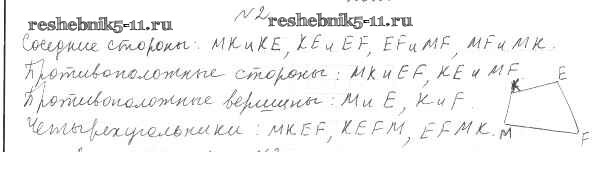 №2
reshebnik5-11.ru reshebnik5-11.ru
Соседние стороны: МК и КЕ, КЕ и EF, EF и MF, MF и МК.
Противоположные стороны: МК и EF, КЕ и MF
Противоположные вершины: М и Е, К и F.
Четырехугольники: MKEF, KEFM, EFMK.
K E
M F